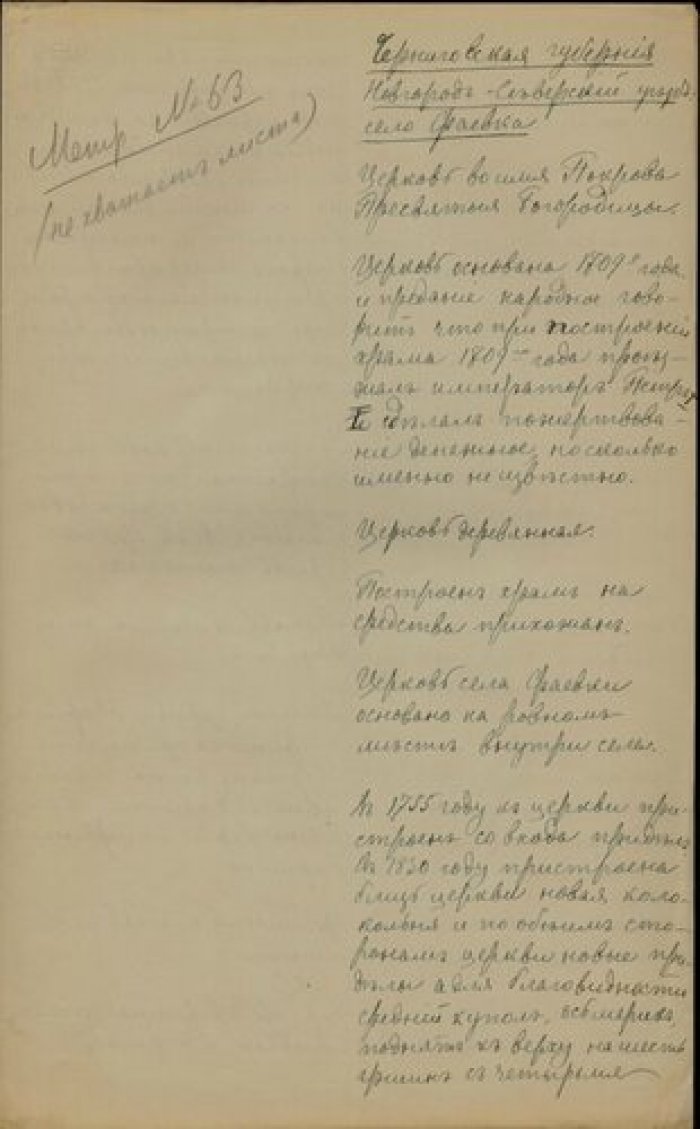 Метр № 63
(не хватаетъ листа)
Черниговская губернія
Новгородъ-Сѣверскій уѣздъ
село Фаевка
Церковь во имя Покрова
Пресвятыя Богородицы.
Церковь основана 1709 года
и преданіе народное гово-
ритъ что при построеніи
храма 1709 года проѣз-
жалъ императоръ Петръ
I и сдѣлалъ пожертвова-
ніе денежное, но сколько
именно неизвѣстно.
Церковь деревянная.
Построенъ храмъ на
средства прихожанъ.
Церковь села Фаевки
основана на ровномъ
мѣстѣ внутри села.
Въ 1755 году къ церкви при-
строенъ со входа придѣлъ
Въ 1830 году пристроена
близь церкви новая коло-
кольня и по обѣимъ сто-
ронамъ церкви новые при-
дѣлы а для благовидности
средній куполъ, осьмерикъ,
поднятъ къ верху на шесть
аршинъ съ четырьмя